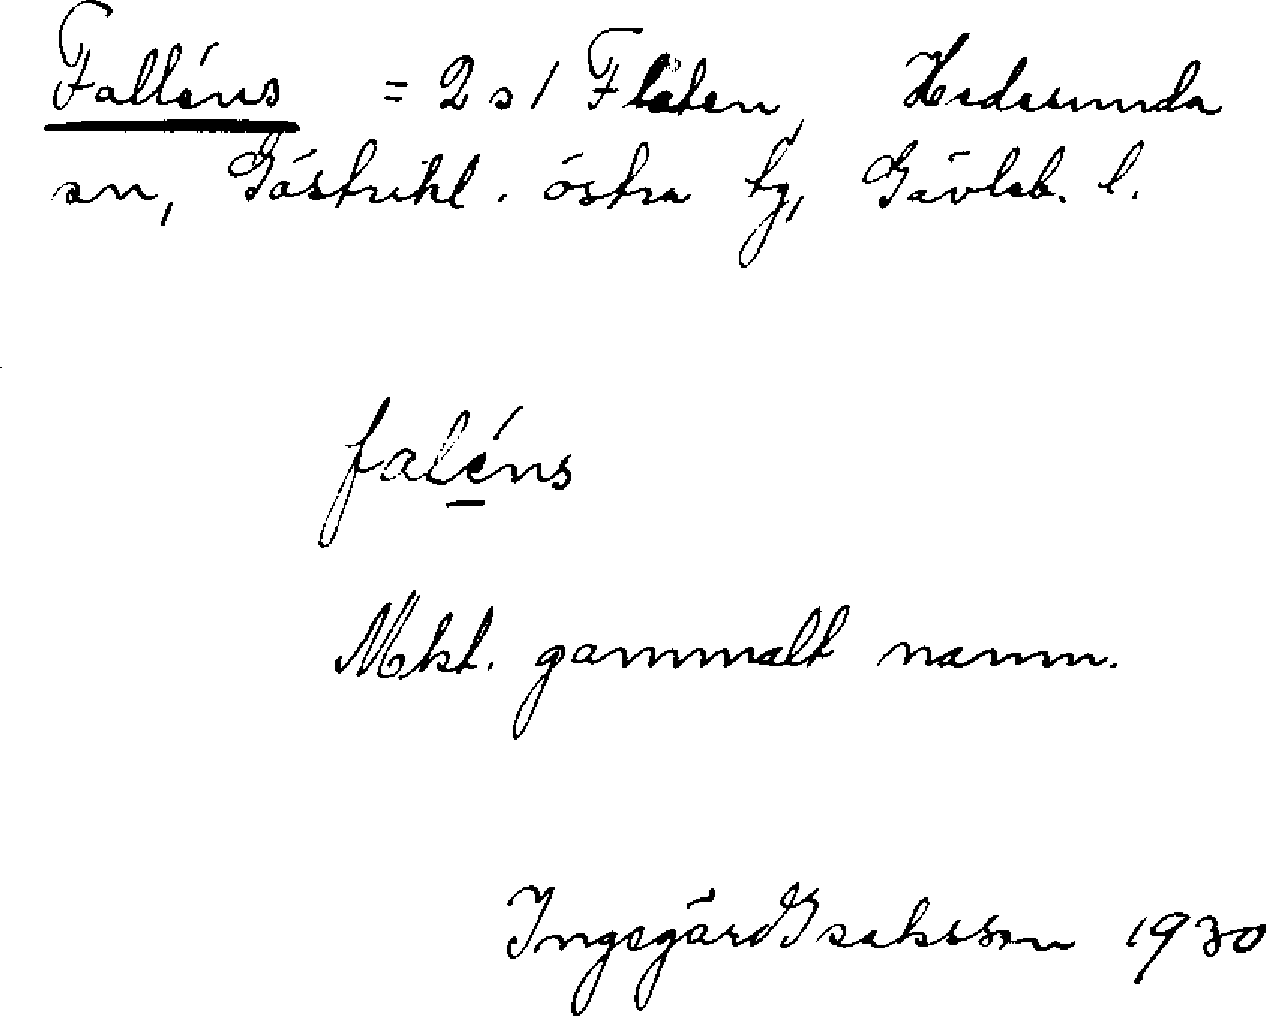 Falléns = 2 s 1 Flåten, Hedesunda
sn, Gästrikl. östra tg, Gävleb. l.
faléns
Mkt. gammalt namn.
Ingegärd Isaksson 1930